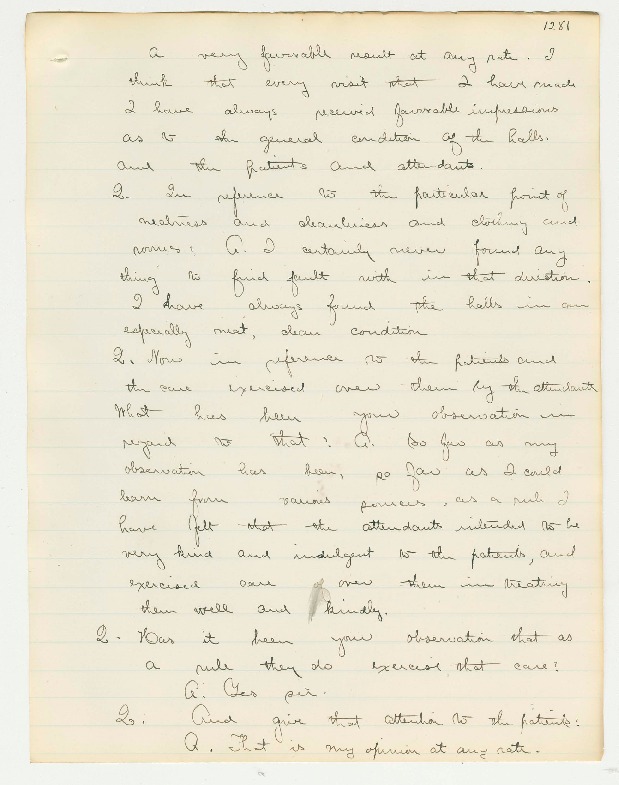 1281
a very favorable result at any rate. I
think that every visit that I have made
I have always received favorable impressions
as to the general condition of the halls.
and the patients and attendants.
Q. In reference to the particular point of
neatness and cleanliness and clothing and
rooms? A. I certainly never found any
thing to find fault with in that direction.
I have always found the halls in an
especially neat, clean condition
Q. Now in reference to the patients and
the care exercised over them by the attendants
What has been your observation in
regard to that? A. So far as my
observation has been, so far as I could
learn from various sources, as a rule I
have felt that the attendants intended to be
very kind and indulgent to the patients, and
exercised care over them in treating
them well and kindly.
Q. Has it been your observation that as
a rule they do exercise that care?
A. Yes sir.
Q. And give that attention to the patients?
A. That is my opinion at any rate.